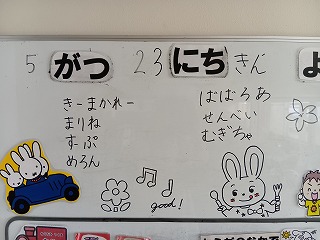 5 がつ 23 にち きん よ
きーまかれー
まりね
すーぷ
めろん
ばばろあ
せんべい
むぎちゃ
good!